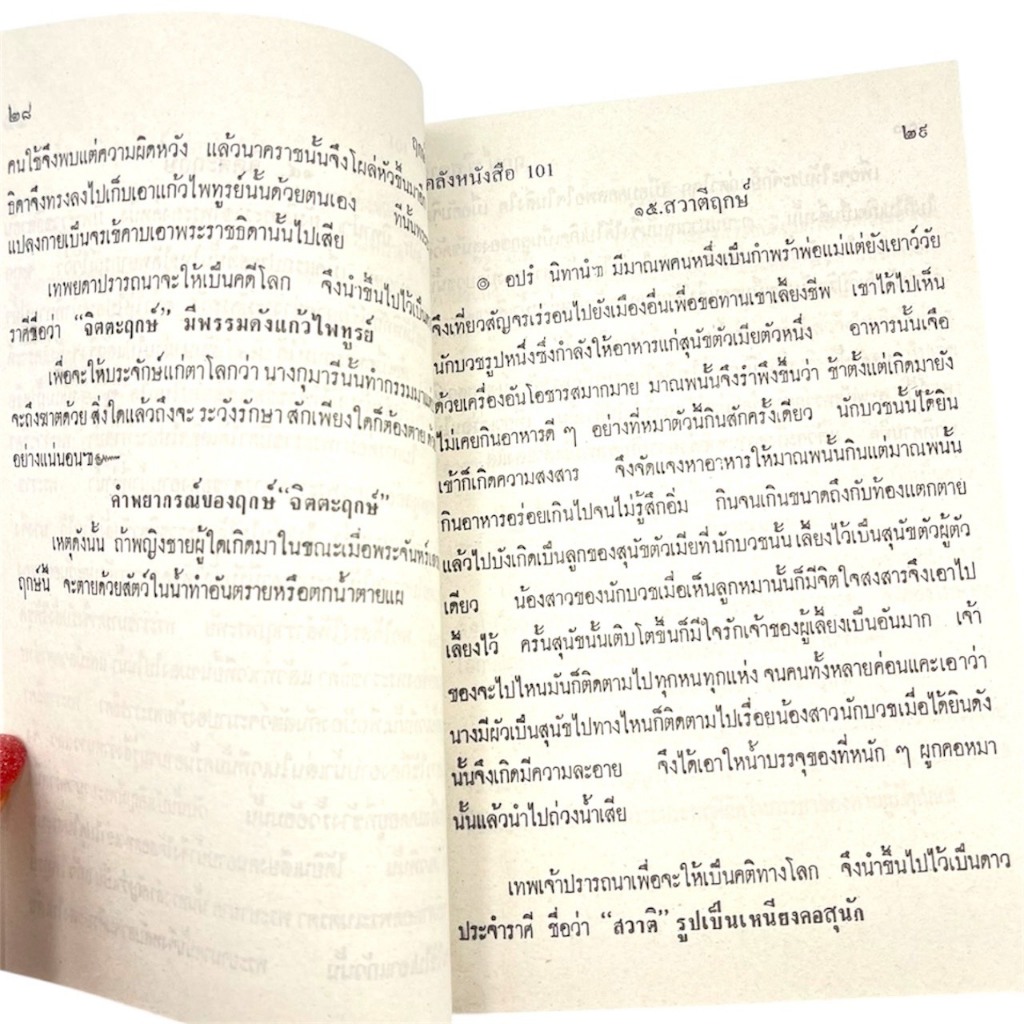 ๒๘
คนใช้จึงพบแต่ความผิดหวัง แล้วนาคราชนั้นจึงโผล่หัวขึ้นมา
ธิดาจึงทรงลงไปเก็บเอาแก้วไพทูรย์นั้นด้วยตนเอง ทีนั้น
แปลงกายเป็นจรเข้คาบเอาพระราชธิดานั้นไปเสีย
เทพยดาปรารถนาจะให้เป็นคดีโลก จึงนำขึ้นไปไว้เป็น
ราศีชื่อว่า “จิตตะฤกษ์” มีพรรมดังแก้วไพทูรย์
เพื่อจะให้ประจักษ์แก่ตาโลกว่า นางกุมารีนั้นทำกรรมมา
จะถึงฆาตด้วย สิ่งใดแล้วถึงจะ ระวังรักษา สักเพียงใดก็ต้องตาย
อย่างแน่นอนฯ
คำพยากรณ์ของฤกษ์ “จิตตะฤกษ์”
เหตุดังนั้น ถ้าหญิงชายผู้ใดเกิดมาในขณะเมื่อพระจันทร์
ฤกษ์นี้ จะตายด้วยสัตว์ในน้ำทำอันตรายหรือตกน้ำตายแผ
๒๙
คลังหนังสือ 101
๑๕.สวาตีฤกษ์
๏ อปรํ นิทานํฯ มีมาณพคนหนึ่งเป็นกำพร้าพ่อแม่แต่ยังเยาว์วัย
จึงเที่ยวสัญจรเร่ร่อนไปยังเมืองอื่นเพื่อขอทานเขาเลี้ยงชีพ เขาได้ไปเห็น
นักบวชรูปหนึ่งซึ่งกำลังให้อาหารแก่สุนัขตัวเมียตัวหนึ่ง อาหารนั้นเจือ
ด้วยเครื่องอันโอชารสมากมาย มาณพนั้นจึงรำพึงขึ้นว่า ข้าตั้งแต่เกิดมายัง
ไม่เคยกินอาหารดี ๆ อย่างที่หมาตัวนี้กินสักครั้งเดียว นักบวชนั้นได้ยิน
เข้าก็เกิดความสงสาร จึงจัดแจงหาอาหารให้มาณพนั้นกินแต่มาณพนั้น
กินอาหารอร่อยเกินไปจนไม่รู้สึกอิ่ม กินจนเกินขนาดถึงกับท้องแตกตาย
แล้วไปบังเกิดเป็นลูกของสุนัขตัวเมียที่นักบวชนั้น เลี้ยงไว้เป็นสุนัขตัวผู้ตัว
เดียว น้องสาวของนักบวชเมื่อเห็นลูกหมานั้นก็มีจิตใจสงสารจึงเอาไป
เลี้ยงไว้ ครั้นสุนัขนั้นเติบโตขึ้นก็มีใจรักเจ้าของผู้เลี้ยงเป็นอันมาก เจ้า
ของจะไปไหนมันก็ติดตามไปทุกหนทุกแห่ง จนคนทั้งหลายค่อนแคะเอาว่า
นางมีผัวเป็นสุนัขไปทางไหนก็ติดตามไปเรื่อยน้องสาวนักบวชเมื่อได้ยินดัง
นั้นจึงเกิดมีความละอาย จึงได้เอาไหน้ำบรรจุของที่หนัก ๆ ผูกคอหมา
นั้นแล้วนำไปถ่วงน้ำเสีย
เทพเจ้าปรารถนาเพื่อจะให้เป็นคติทางโลก จึงนำขึ้นไปไว้เป็นดาว
ประจำราศี ชื่อว่า “สวาติ” รูปเป็นเหนียงคอสุนัก